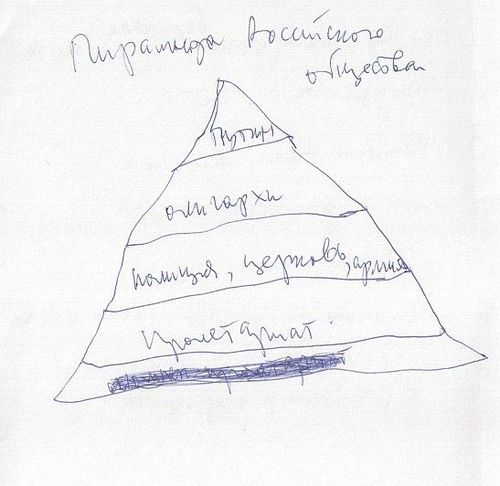 Пирамида Российского
общества
Путин
олигархи
полиция, церковь, армия
пролетариат.